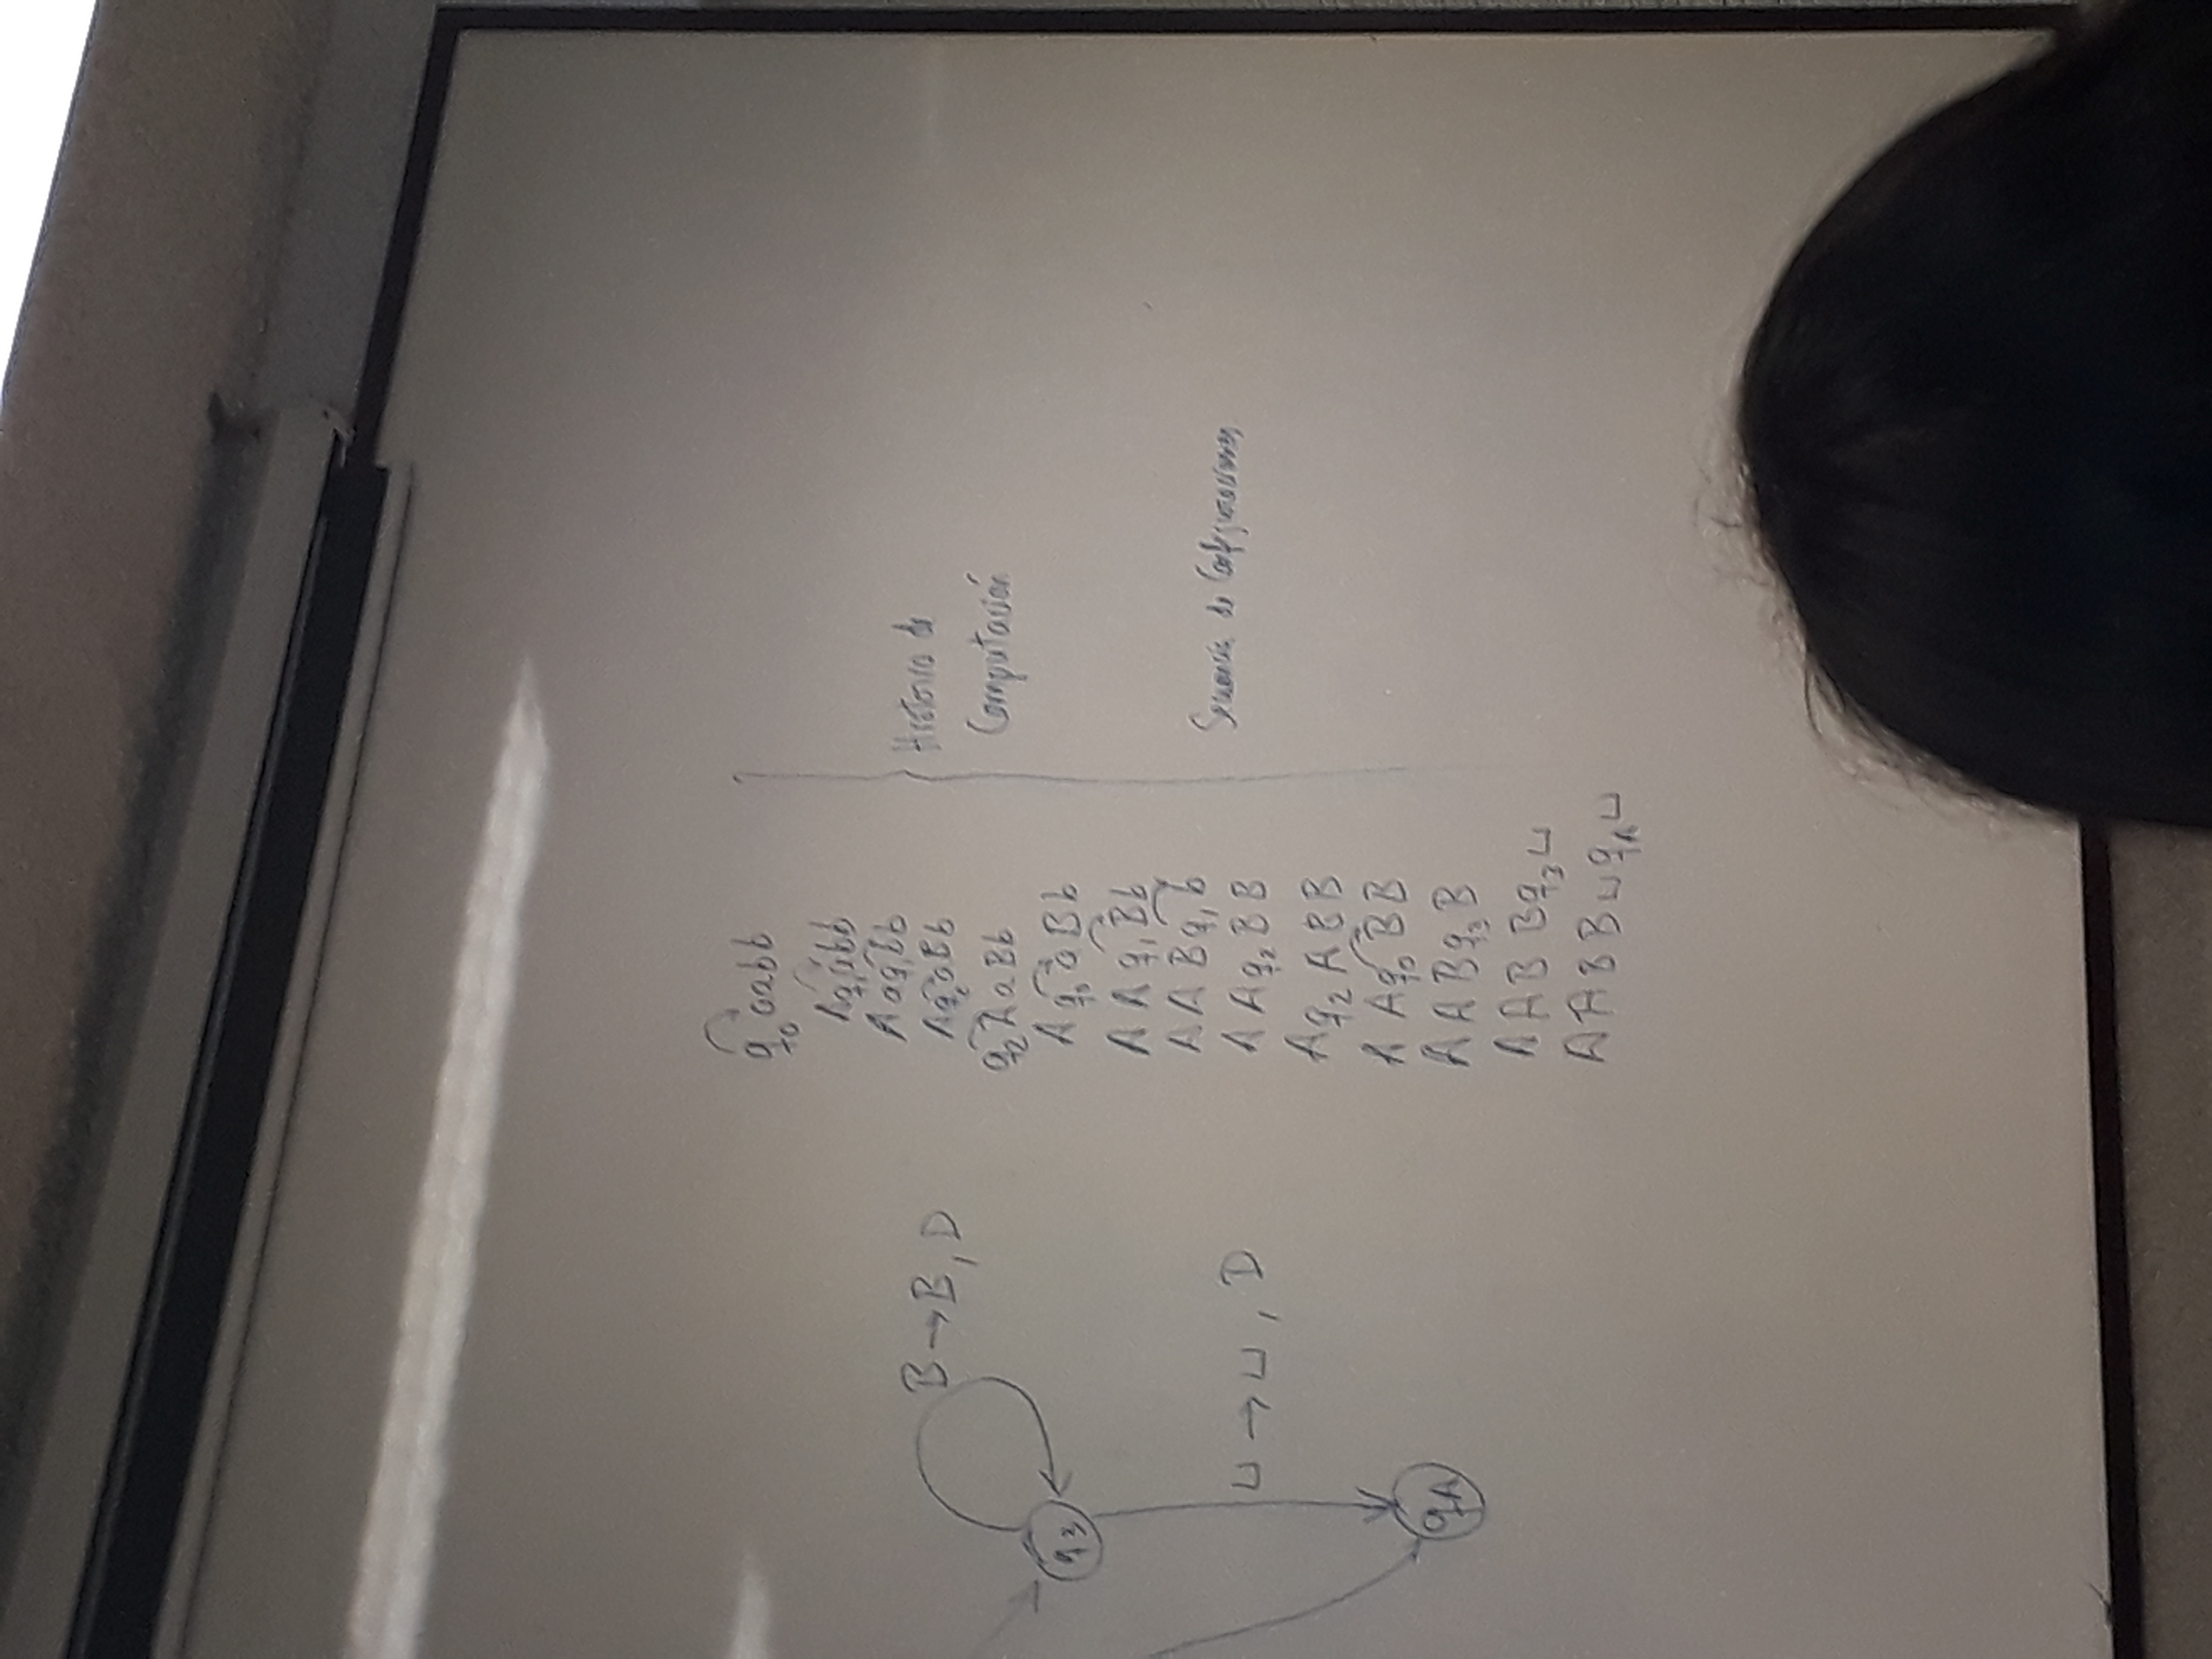 B → B, D
q3
⊔ → ⊔, D
qA
q0 aabb
A q1 abb
A a q1 Bb
A q2 a B b
q2 A a B b
A q0 a B b
A A q1 B b
A A B q1 b
A A q2 B B
A q2 A B B
A A q0 B B
A A B q3 B
A A B B q3 ⊔
A A B B ⊔ qA ⊔
de
Computación
Secuencia de Configuraciones